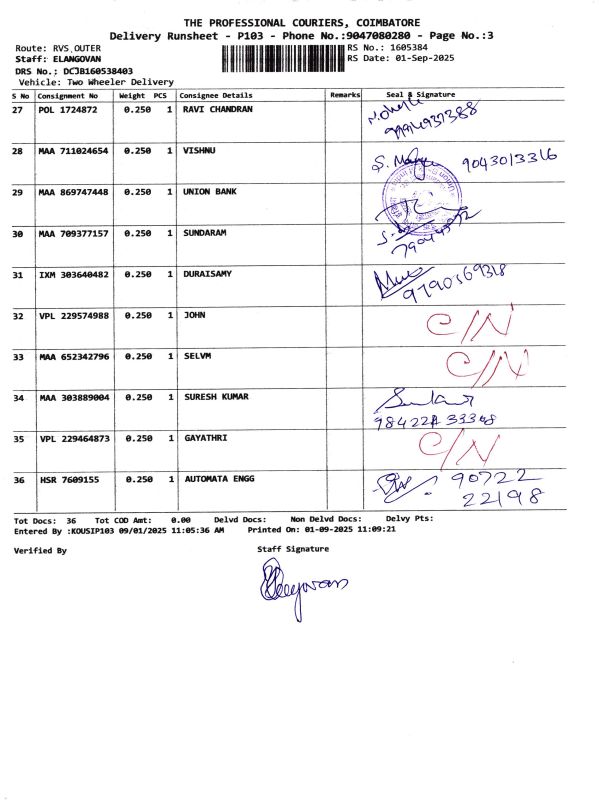 THE PROFESSIONAL COURIERS, COIMBATORE
Delivery Runsheet - P103 - Phone No.:9047080280 - Page No.:3
Route: RVS OUTER RS No.: 1605384
Staff: ELANGOVAN RS Date: 01-Sep-2025
DRS No.; DCJB160538403
Vehicle: Two Wheeler Delivery
S No Consignment No Weight PCS Consignee Details Remarks Seal & Signature
27 POL 1724872 0.250 1 RAVI CHANDRAN
28 MAA 711024654 0.250 1 VISHNU 9043013316
29 MAA 869747448 0.250 1 UNION BANK
30 MAA 709377157 0.250 1 SUNDARAM
31 IXM 303640482 0.250 1 DURAISAMY 9790569318
32 VPL 229574988 0.250 1 JOHN C/N
33 MAA 652342796 0.250 1 SELVM C/N
34 MAA 303889004 0.250 1 SURESH KUMAR
35 VPL 229464873 0.250 1 GAYATHRI C/N
36 HSR 7609155 0.250 1 AUTOMATA ENGG 90722
22198
Tot Docs: 36 Tot COD Amt: 0.00 Delvd Docs: Non Delvd Docs: Delvy Pts:
Entered By :KOUSIP103 09/01/2025 11:05:36 AM Printed On: 01-09-2025 11:09:21
Verified By Staff Signature